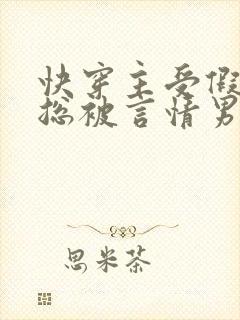 快穿主受假
总被言情男
思米茶